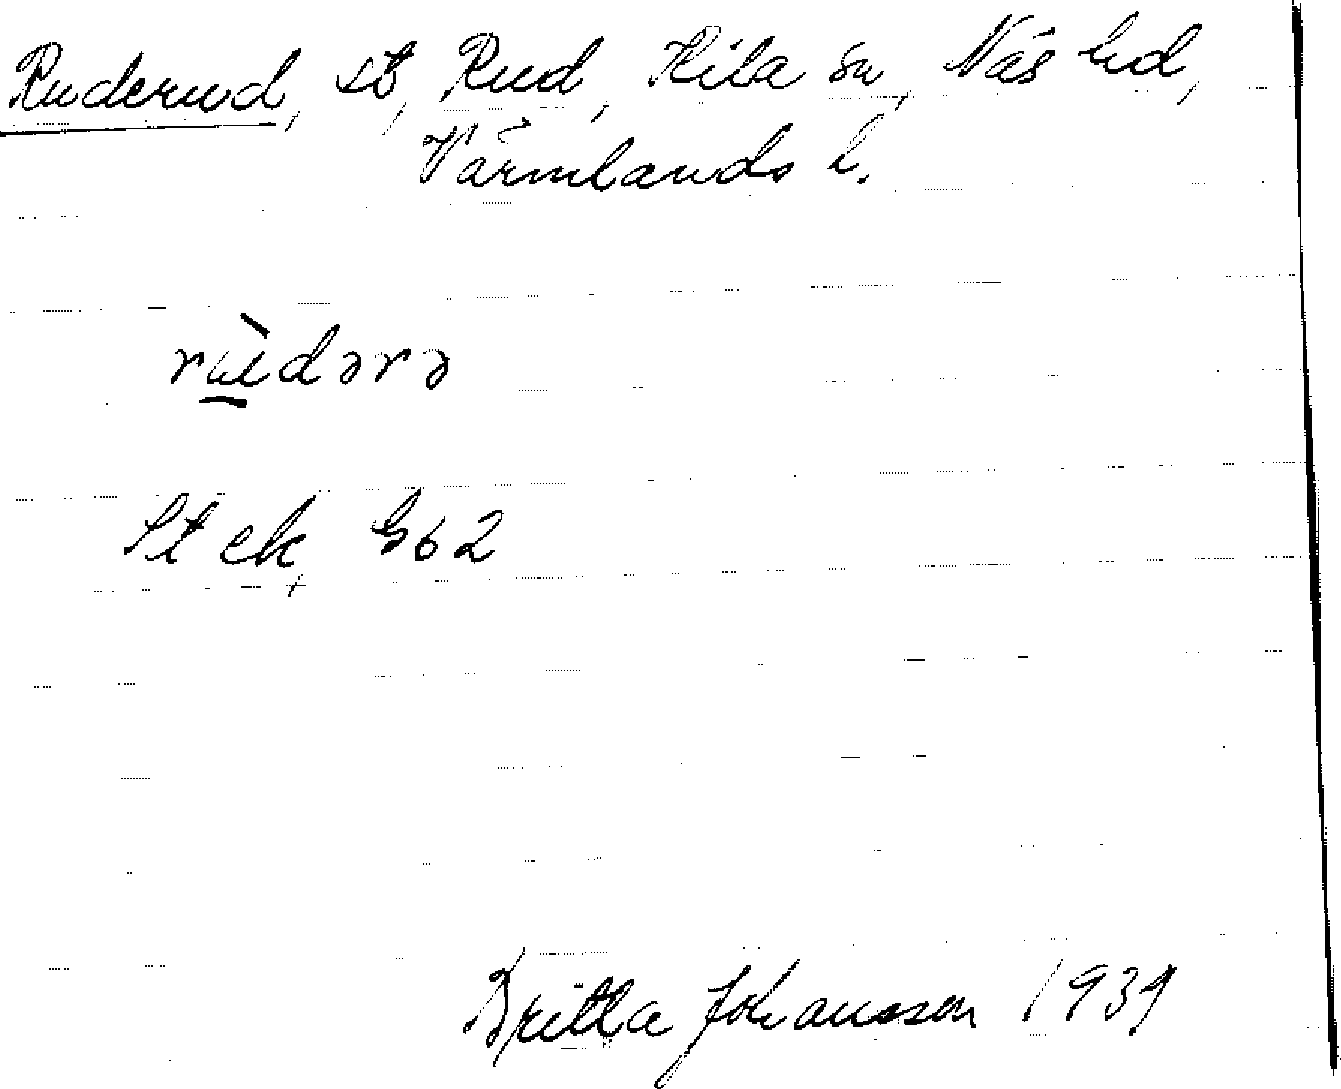 Ruderud, st, Rud, Kila sn, Näs hd,
Värmlands l.
rùdərə
St ek G62
Britta Johansson 1939